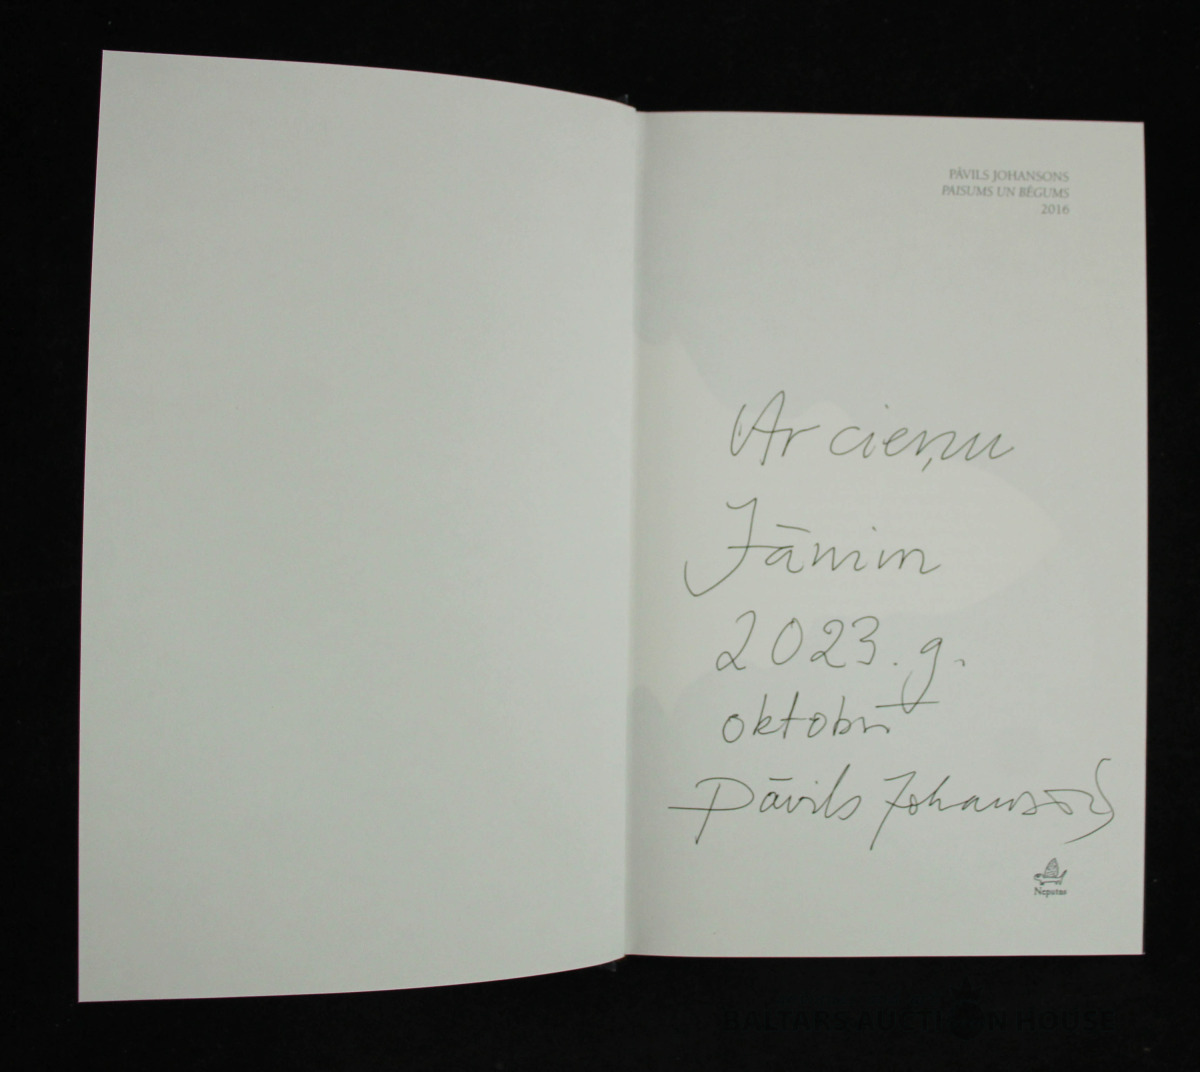 PĀVILS JOHANSONS
PAISUMS UN BĒGUMS
2016
Ar cieņu
Jānim
2023. g.
oktobrī
Pāvils Johansons
Neputns
BALTARS AUCTION HOUSE